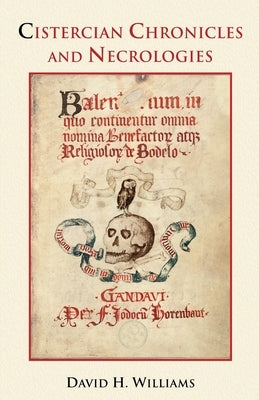 CISTERCIAN CHRONICLES
AND NECROLOGIES
in
quo continentur omnia
nomina Benefactor atqz
Religiosor de Bodelo
GANDAVI
Per F. Jodocu Horenbaut
DAVID H. WILLIAMS